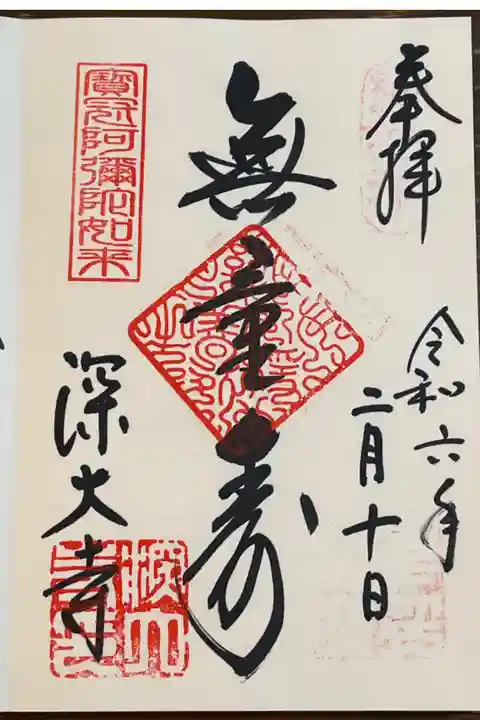 奉拝
令和六年
二月十日
無量寿
寶冠阿彌陀如来
深大寺